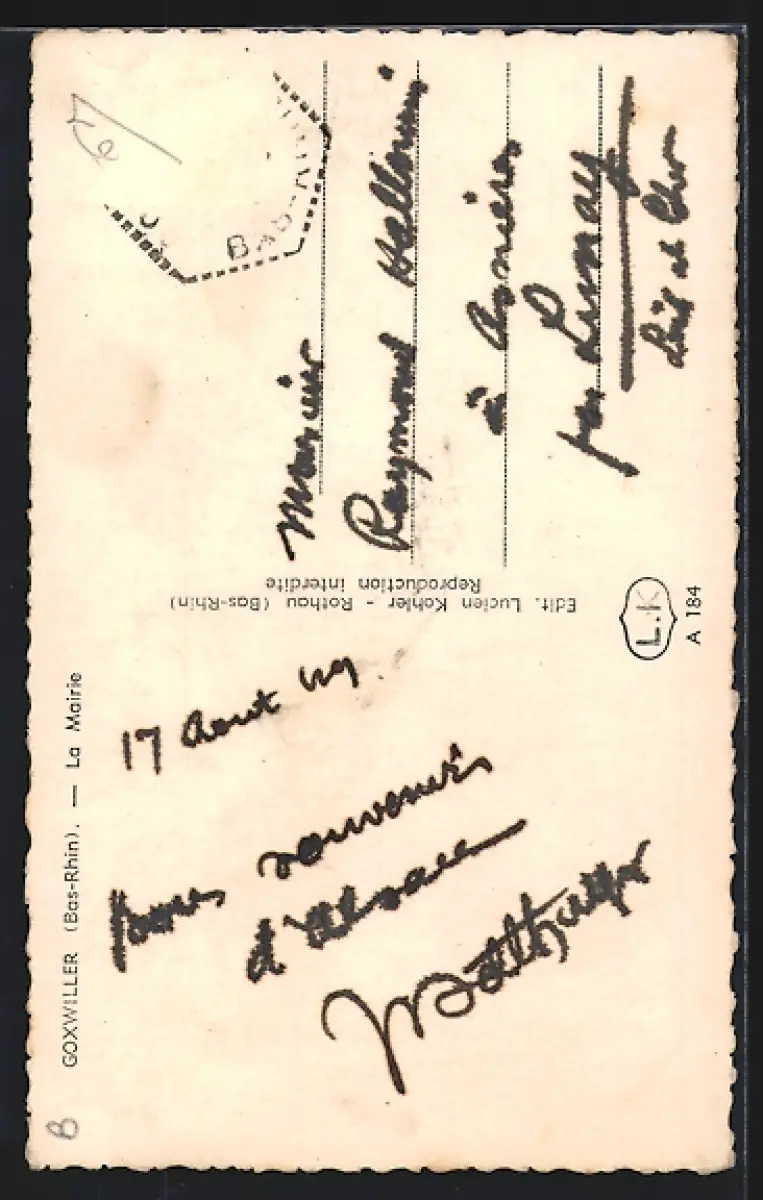 GOXWILLER (Bas-Rhin). — La Mairie
17 Aout 49
bons souvenirs
d'Alsace
Edit. Lucien Kohler - Rothau (Bas-Rhin)
Reproduction interdite
L.K
A 184
BAS-RHIN
Monsieur
Raymond
à Asnières
par Lunay
Loir et Cher
6/
B